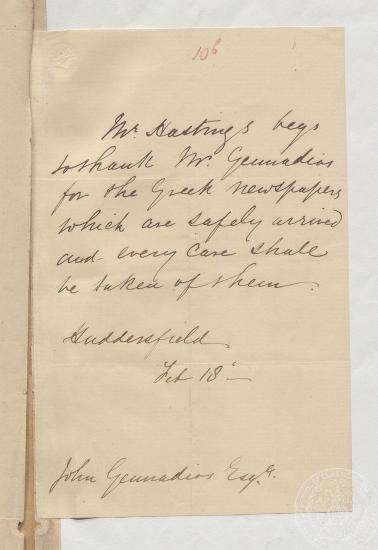 106
Mr. Hastings begs
to thank Mr. Gennadios
for the Greek newspapers
which are safely arrived
and every care shall
be taken of them.
Huddersfield
Feb 18
John Gennadios Esqr.